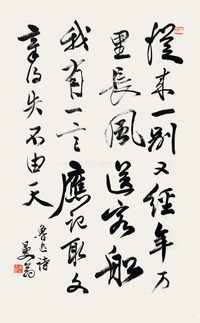 從来一别又經年万
里長風送客船
我有一言應記取文
章得失不由天
魯迅詩
曼翁